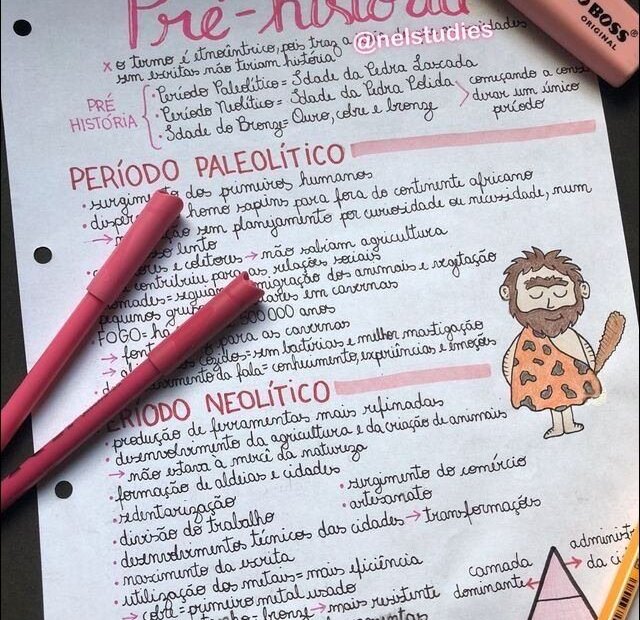 Pré-história
@nelstudies
BOSS
ORIGINAL
x o termo é etnocêntrico, pois traz a sociedades
sem escritas não teriam história
PRÉ HISTÓRIA
• Período Paleolítico = Idade da Pedra Lascada
• Período Neolítico = Idade da Pedra Polida
• Idade do Bronze = Ouro, cobre e bronze
começando a consi
derar um único
período
PERÍODO PALEOLÍTICO
• surgimento dos primeiros humanos
• homo sapiens para fora do continente africano
→ sem planejamento por curiosidade ou necessidade, num
lento
e coletores → não sabiam agricultura
contribuiu para as relações sociais
nomades = migração dos animais e vegetação
pequenos em cavernas
FOGO = 500 000 anos
→ para as cavernas
→ cozidos = sem bactérias e melhor mastigação
da fala = conhecimento, experiências e emoções
PERÍODO NEOLÍTICO
• produção de ferramentas mais refinadas
• desenvolvimento da agricultura e da criação de animais
→ não estava à mercê da natureza
• formação de aldeias e cidades
• surgimento do comércio
• sedentarização
• artesanato
• divisão do trabalho
• desenvolvimentos técnicos das cidades → transformações
• nascimento da escrita
• utilização dos metais = mais eficiência
→ cobre = primeiro metal usado
bronze → mais resistente
camada
dominante
administ
da ci